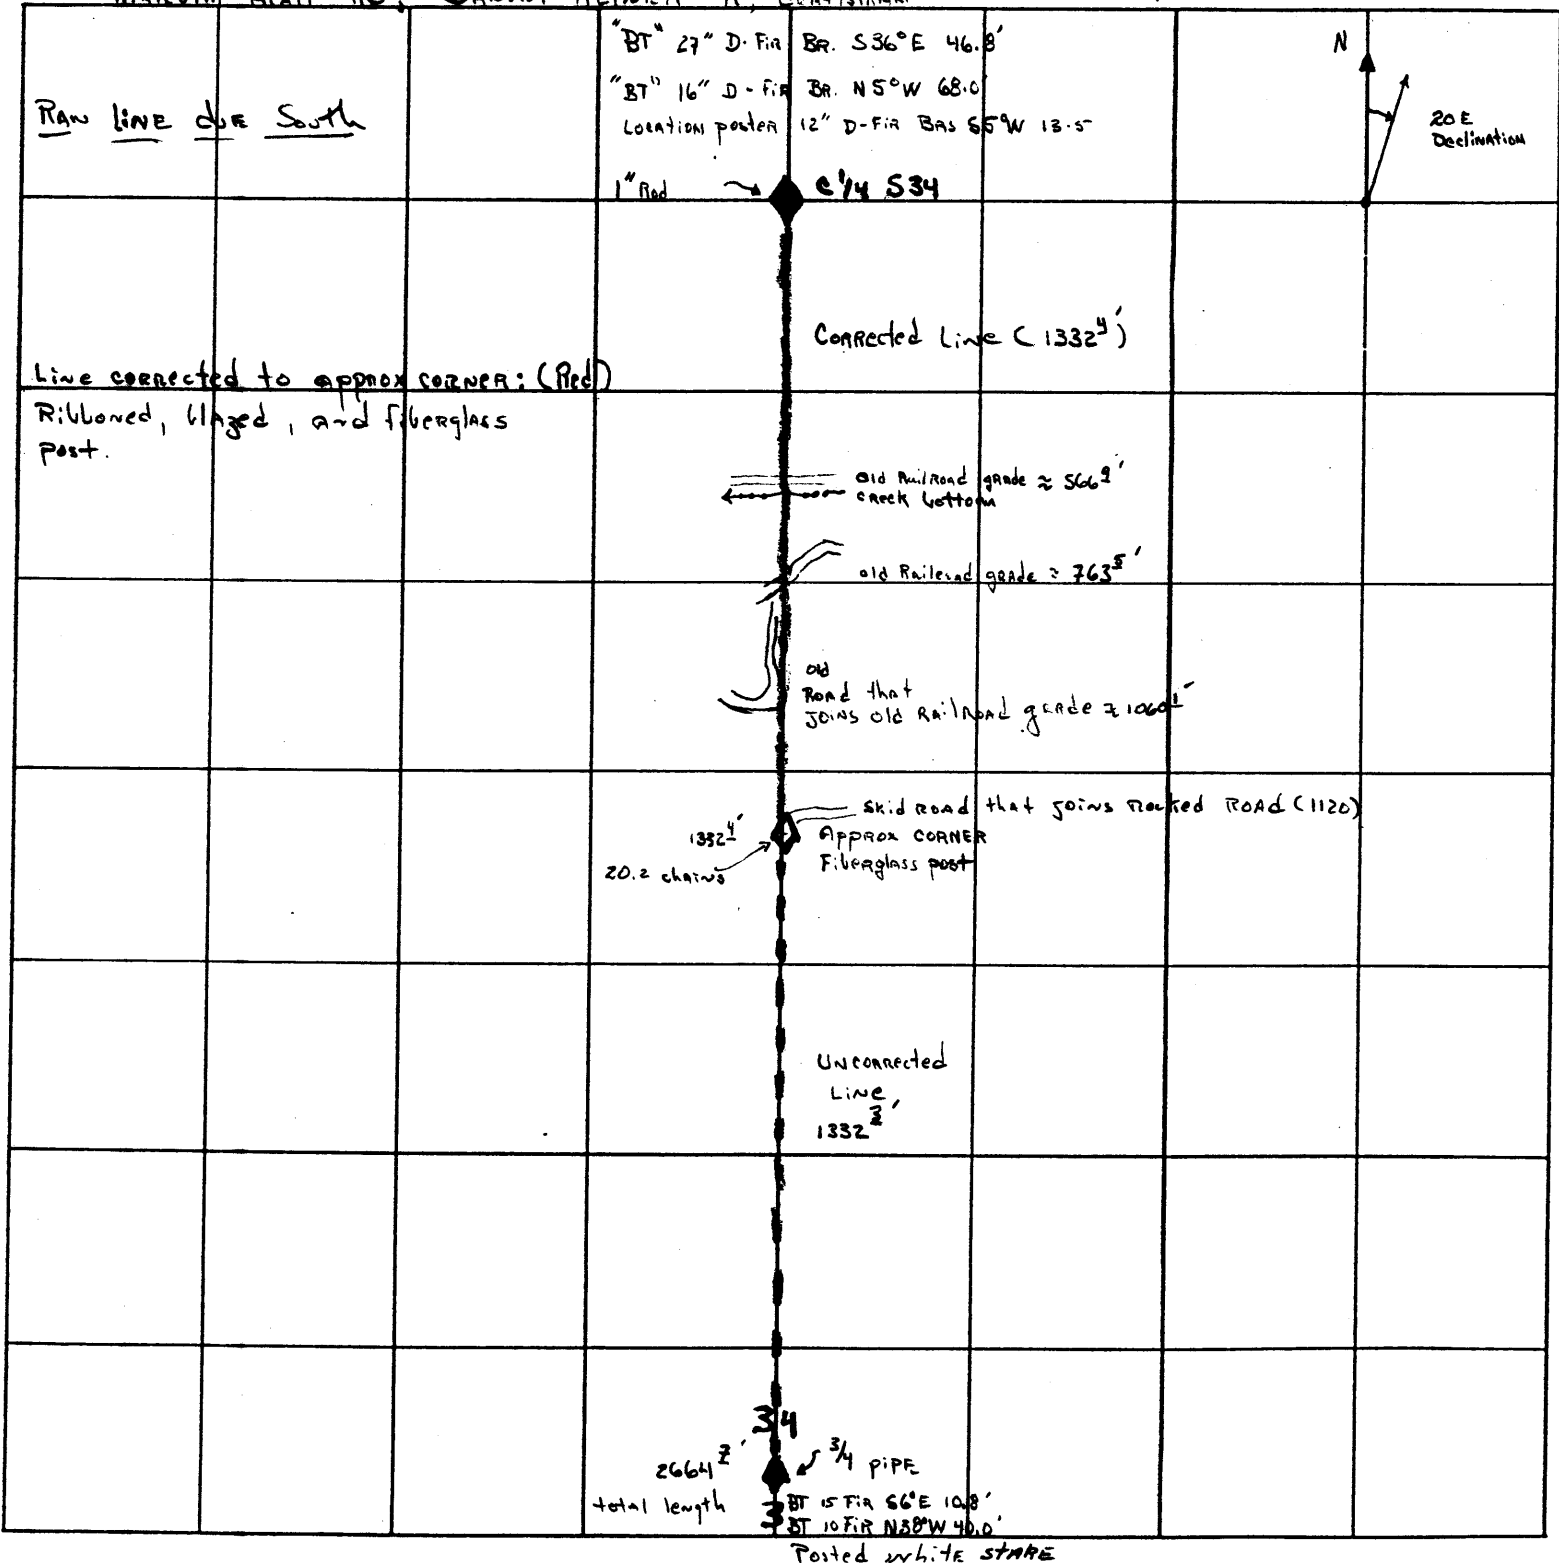 "BT" 27" D-Fir BR. S36°E 46.8'
"BT" 16" D-Fir BR. N5°W 68.0'
Location poster 12" D-Fir BRS S5°W 13.5
N
20 E
Declination
Ran line due South
1" Rod
C 1/4 S34
Corrected Line (1332.4')
Line corrected to approx corner: (Red)
Ribboned, blazed, and fiberglass
post.
old Railroad grade ≈ 566.9'
creek bottom
old Railroad grade ≈ 763.5'
old
Road that
joins old Railroad grade ≈ 1060.1'
Skid road that joins rocked road (1120)
1332.4'
Approx corner
Fiberglass post
20.2 chains
Uncorrected
Line
1332.3'
34
2664.7'
total length
3/4 pipe
3
BT 15 Fir S6°E 10.8'
BT 10 Fir N38°W 40.0'
Posted white stake